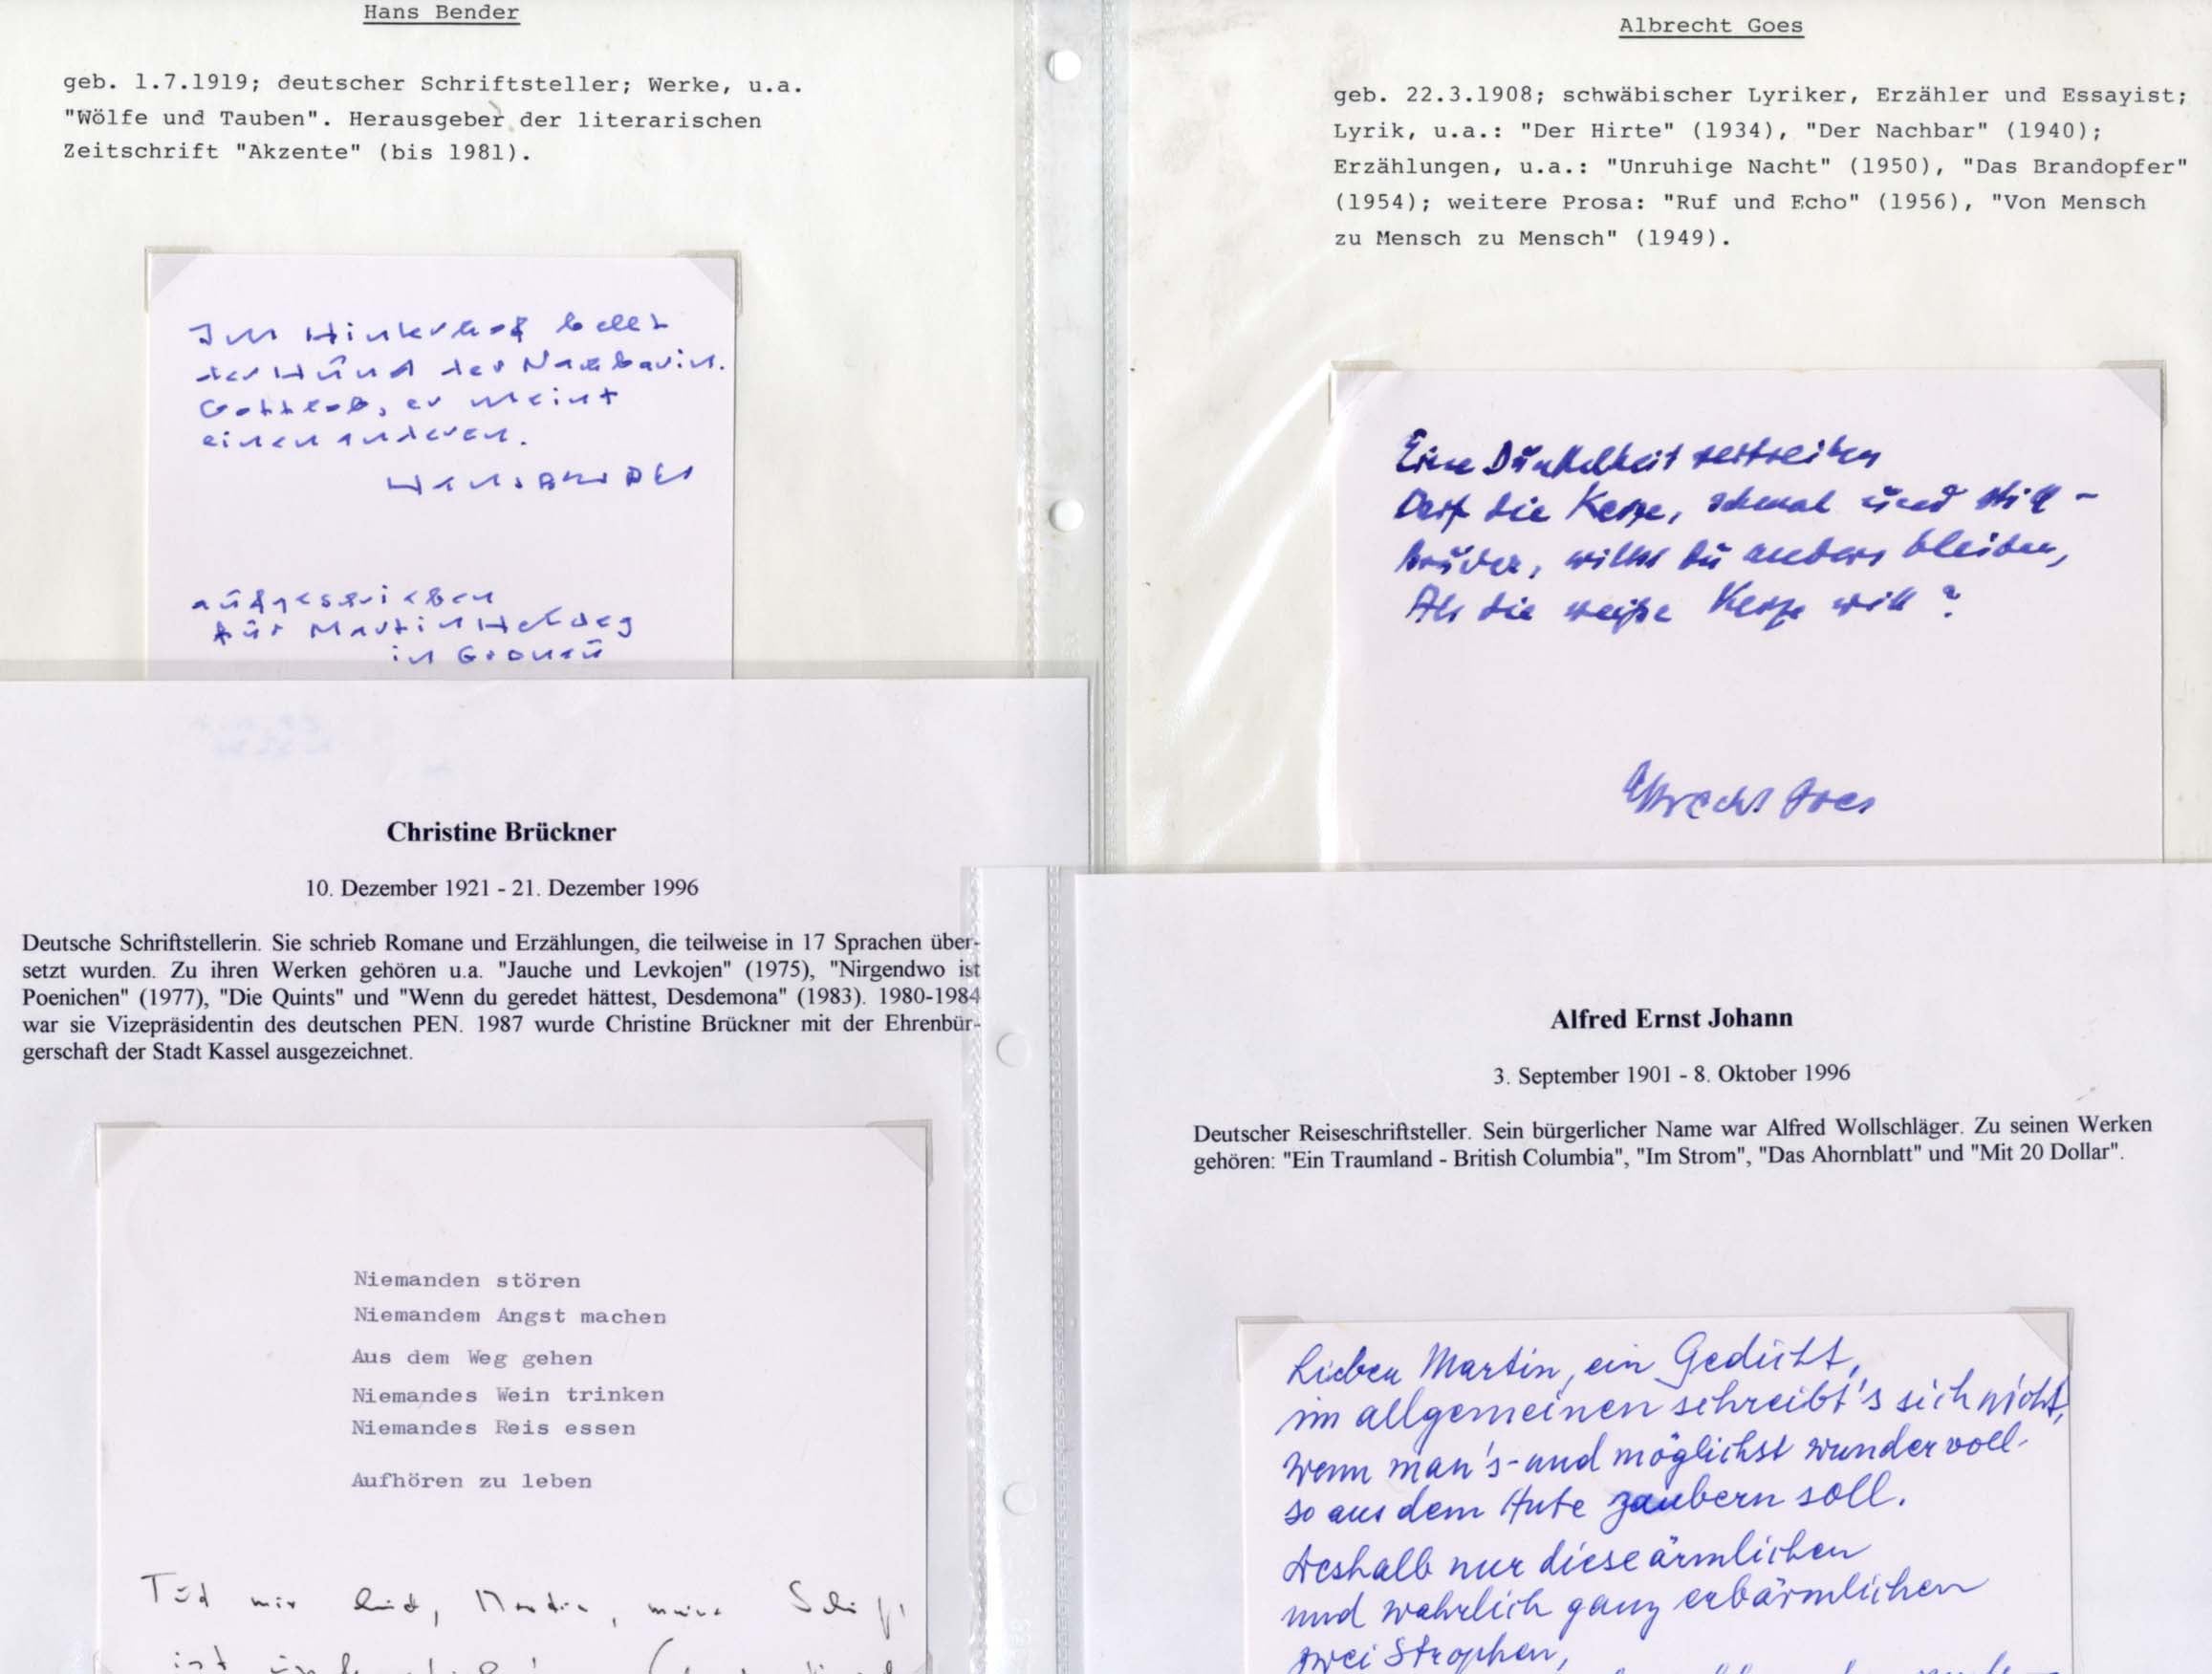 Hans Bender
geb. 1.7.1919; deutscher Schriftsteller; Werke, u.a.
"Wölfe und Tauben". Herausgeber der literarischen
Zeitschrift "Akzente" (bis 1981).
Im Hinterhof bellt
der Hund der Nachbarin.
Gottlob, er meint
einen anderen.
Hans Bender
aufgeschrieben
für Martin Helweg
in Gronau
Albrecht Goes
geb. 22.3.1908; schwäbischer Lyriker, Erzähler und Essayist;
Lyrik, u.a.: "Der Hirte" (1934), "Der Nachbar" (1940);
Erzählungen, u.a.: "Unruhige Nacht" (1950), "Das Brandopfer"
(1954); weitere Prosa: "Ruf und Echo" (1956), "Von Mensch
zu Mensch zu Mensch" (1949).
Eine Dunkelheit vertreiben
Darf die Kerze, schmal und still –
Bruder, willst du anders bleiben,
Als die weiße Kerze will?
Albrecht Goes
Christine Brückner
10. Dezember 1921 - 21. Dezember 1996
Deutsche Schriftstellerin. Sie schrieb Romane und Erzählungen, die teilweise in 17 Sprachen über-
setzt wurden. Zu ihren Werken gehören u.a. "Jauche und Levkojen" (1975), "Nirgendwo ist
Poenichen" (1977), "Die Quints" und "Wenn du geredet hättest, Desdemona" (1983). 1980-1984
war sie Vizepräsidentin des deutschen PEN. 1987 wurde Christine Brückner mit der Ehrenbür-
gerschaft der Stadt Kassel ausgezeichnet.
Niemanden stören
Niemandem Angst machen
Aus dem Weg gehen
Niemandes Wein trinken
Niemandes Reis essen
Aufhören zu leben
Tut mir leid, Martin, meine Schrift
ist
Alfred Ernst Johann
3. September 1901 - 8. Oktober 1996
Deutscher Reiseschriftsteller. Sein bürgerlicher Name war Alfred Wollschläger. Zu seinen Werken
gehören: "Ein Traumland - British Columbia", "Im Strom", "Das Ahornblatt" und "Mit 20 Dollar".
Lieber Martin, ein Gedicht,
im allgemeinen schreibt's sich nicht,
wenn man's - und möglichst wundervoll -
so aus dem Hute zaubern soll.
Deshalb nur diese ärmlichen
und wahrlich ganz erbärmlichen
zwei Strophen,